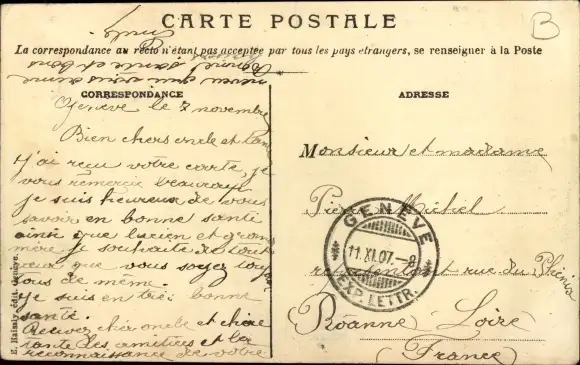 CARTE POSTALE
La correspondance au recto n'étant pas acceptée par tous les pays étrangers, se renseigner à la Poste
B
CORRESPONDANCE
Genève le 7 novembre
Bien chers oncle et tante
j'ai reçu votre carte, je
vous remercie beaucoup
je suis heureux de vous
savoir en bonne santé
ainsi que lucien et grand
mère je souhaite de tout
cœur que vous soyez toujours
tous de même.
Je suis en très bonne
santé.
Recevez cher oncle et chère
tante les amitiées et la
reconnaissance de votre
neveu qui vous aime
bonne santé et bon
E. Haissly, édit. Genève.
ADRESSE
Monsieur et madame
Pierre Michel
rue du Phénix
Roanne Loire
(France)
GENÈVE
11.XI.07.-8
EXP. LETTR.